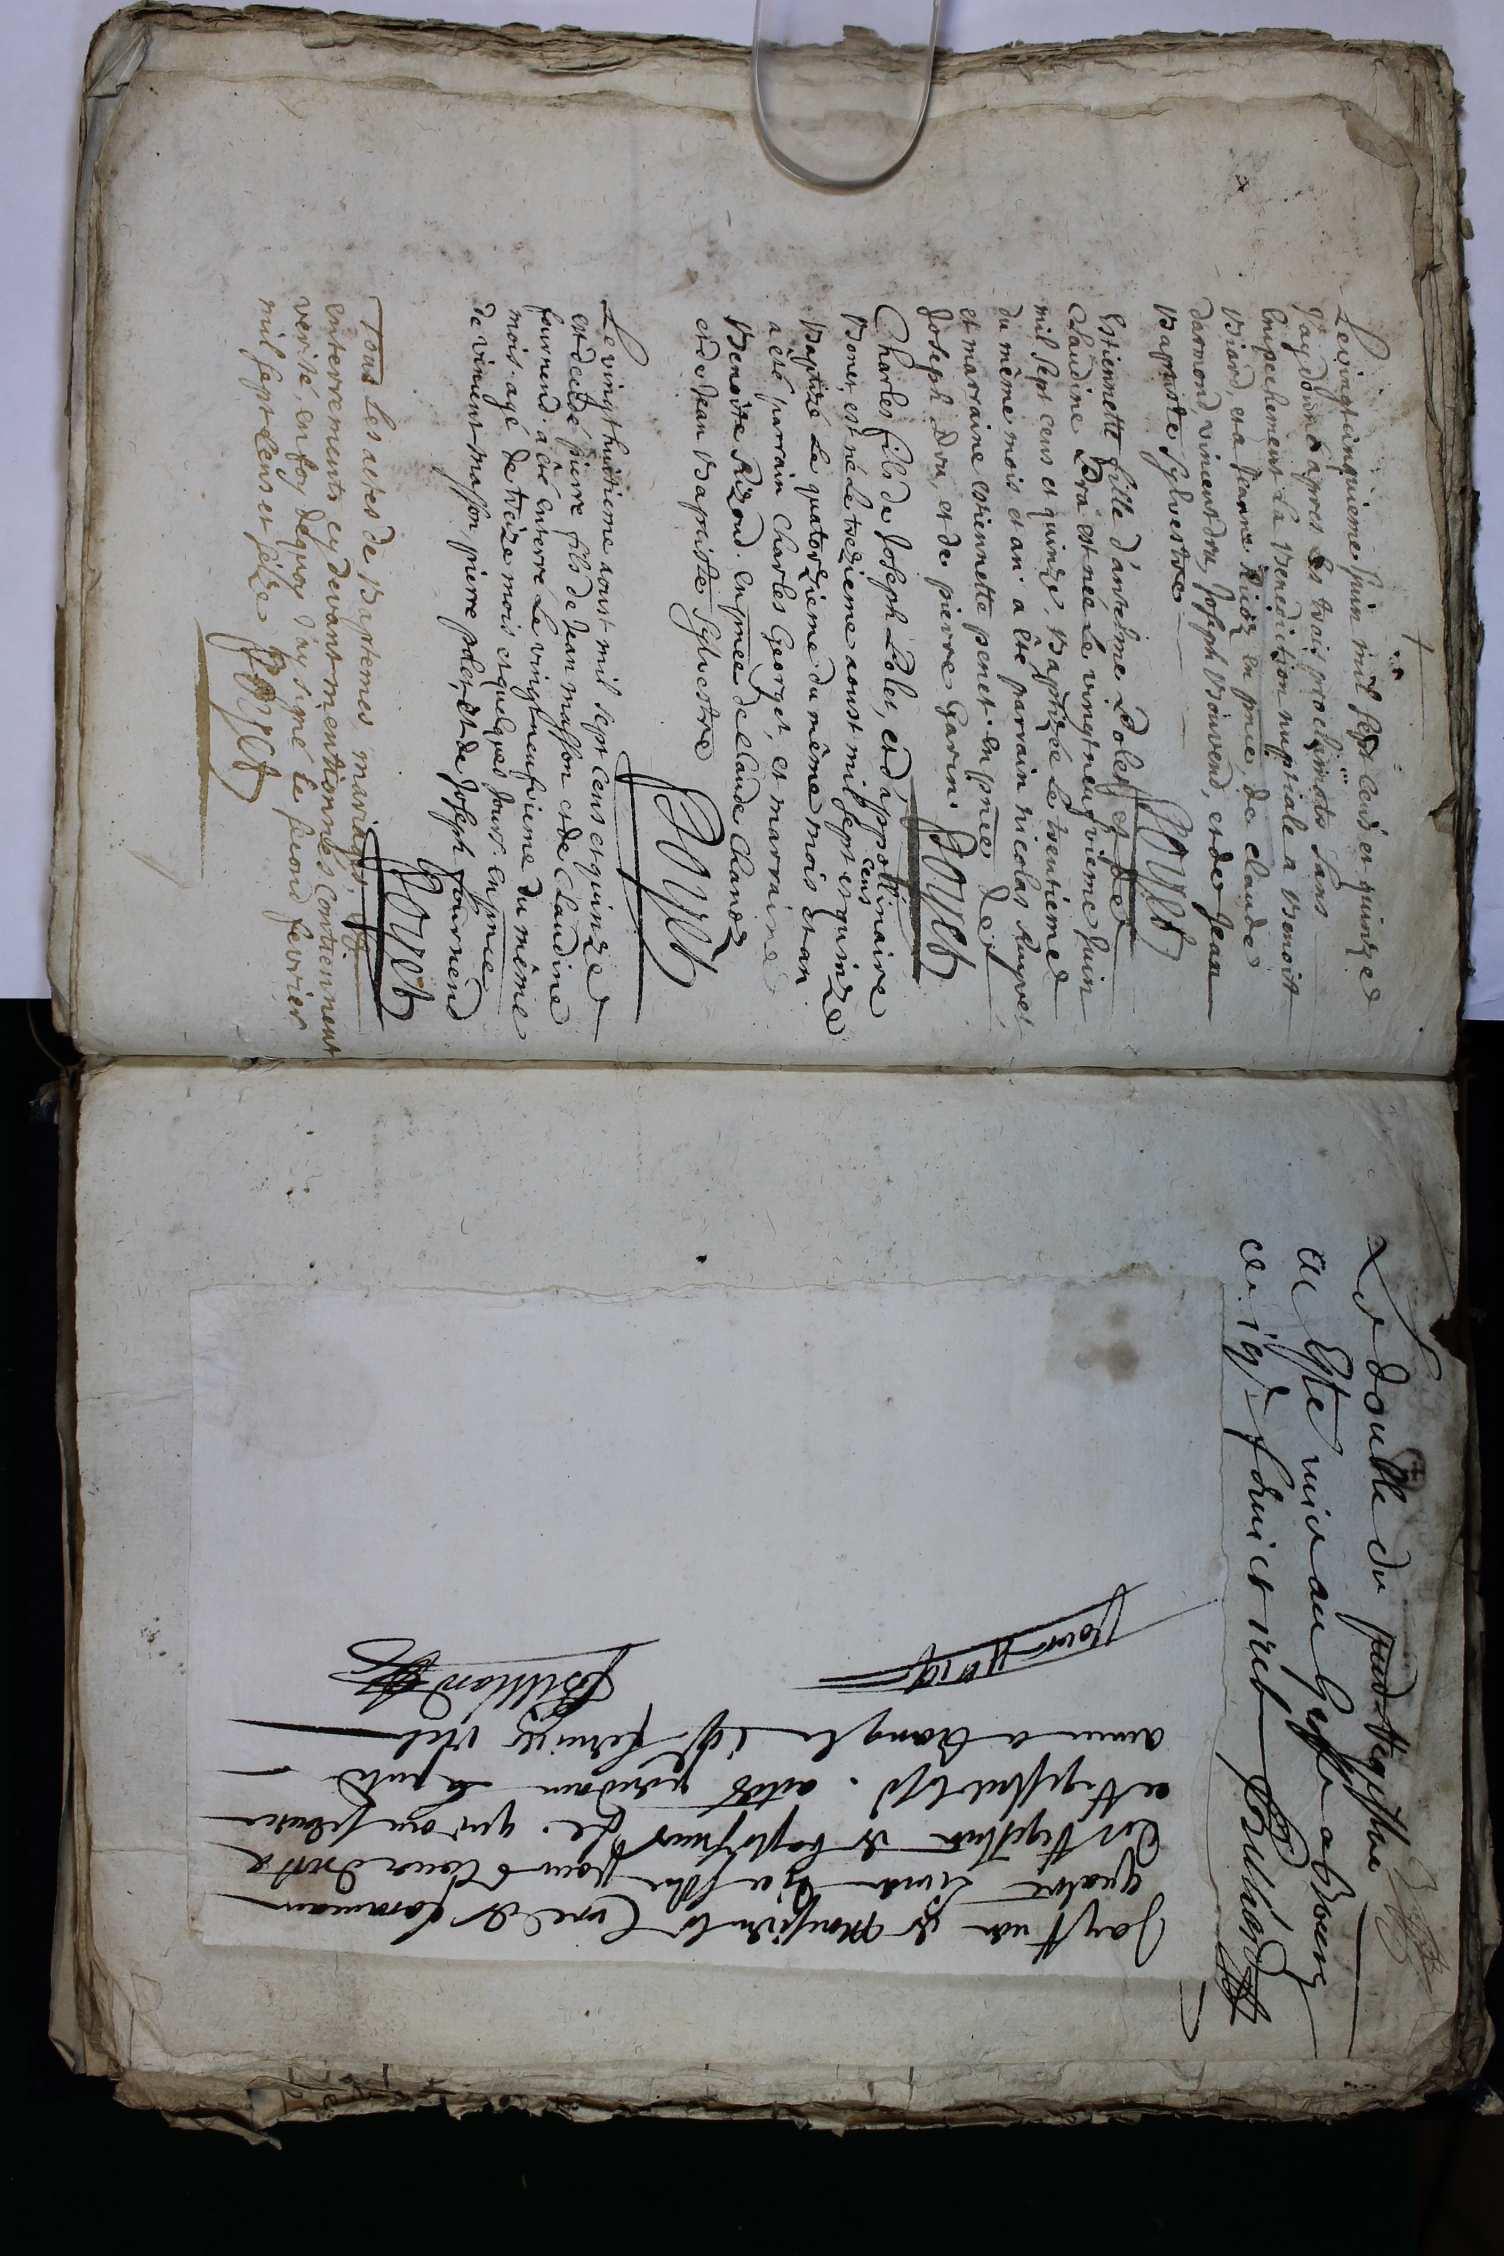 Le vingt cinquieme Juin mil sept cens et quinze
J'ay donné apres les trois proclamaõns sans
empechement la benediction nuptiale a benoist
Biord, et a Jeanne Rion en pñce, de claude
darmond vincent dru, Joseph Bouvend, et de Jean
Baptiste sylvestre
Boyet
Estiennette fille d'antelme Polet et de
Claudine Pra est née le vingt neufvieme Juin
mil sept cens et quinze. baptizée le trentieme
du même mois et an. a été parrain nicolas
et marraine estiennette penet. en pñce de
Joseph dru, et de pierre Garin.
Boyet
Charles fils de Joseph Polet, et d'appollinaire
Boner, est né le trezieme aoust mil sept cens et quinze
Baptizé le quatorzieme du même mois et an
a été parrain Charles Georget, et marraine
Benoite Rizond. en pñce de claude Chanoz
et de Jean Baptiste Sylvestre
Boyet
Le vingt huitieme aoust mil sept cens et quinze
est decedé pierre fils de Jean masson et de Claudine
fournend. a été enterré le vingt neufvieme du même
mois. agé de treize mois et quelques Jours. en pñce
de vincent masson, pierre polet, et de Joseph fournend
Boyet
Tous les actes de Baptemes mariages, et
enterrements cy devant mentionnés contiennent
verité, en foy dequoy J'ay signé le second fevrier
mil sept cens et seize Boyet
Le double du pñt Registre
a Esté mis au Greffe a Bourg
ce 19e fevrier 1716 Billiard
Jay Receu de Monsieur le Curé de
quatre livres
des Registres de baptesmes &c. qui ont
et Registres
19e fevrier 1716
Billiard